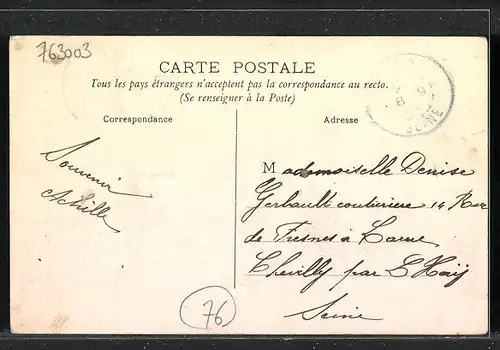 763003
CARTE POSTALE
Tous les pays étrangers n'acceptent pas la correspondance au recto.
(Se renseigner à la Poste)
Correspondance
Adresse
Souvenir
Achille
Mademoiselle Denise
Gerbault couturière 14 Rue
de Fresnes à
Chevilly par L'Haÿ
Seine
76